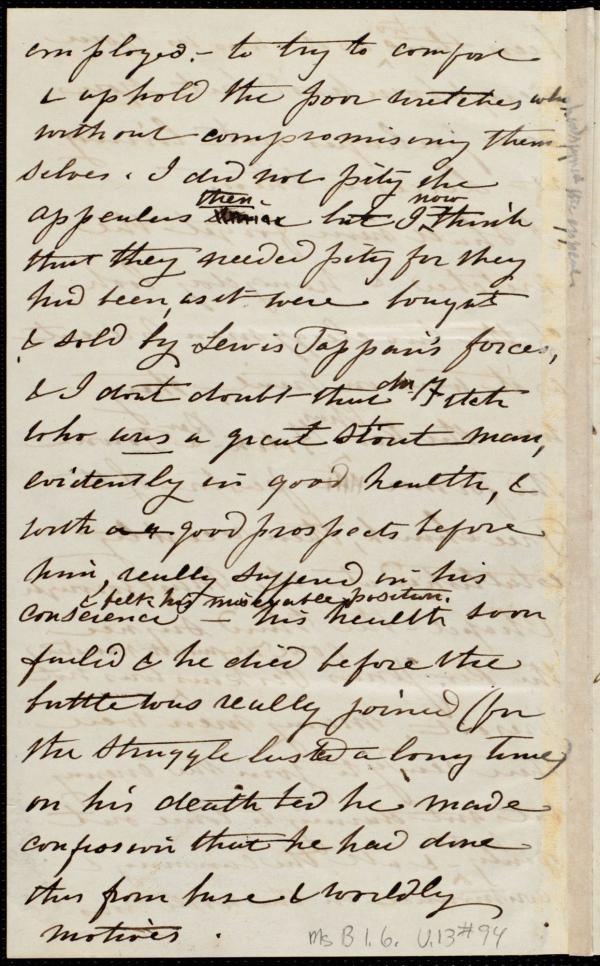 employed. - to try to comfort
& uphold the poor wretches who
without compromising them
selves. I did not pity the
appealers then but I now think
that they needed pity for they
had been, as it were bought
& sold by Lewis Tappan's forces,
& I dont doubt that Mr. Fitch
who was a great stout man,
evidently in good health, &
with a good prospects before
him, really suffered in his
conscience & felt his miserable position. - his health soon
failed & he died before the
battle was really joined (for
the struggle lasted a long time)
on his death bed he made
confession that he had done
this from base & worldly
motives.
Ms B 1.6. V.13 #94